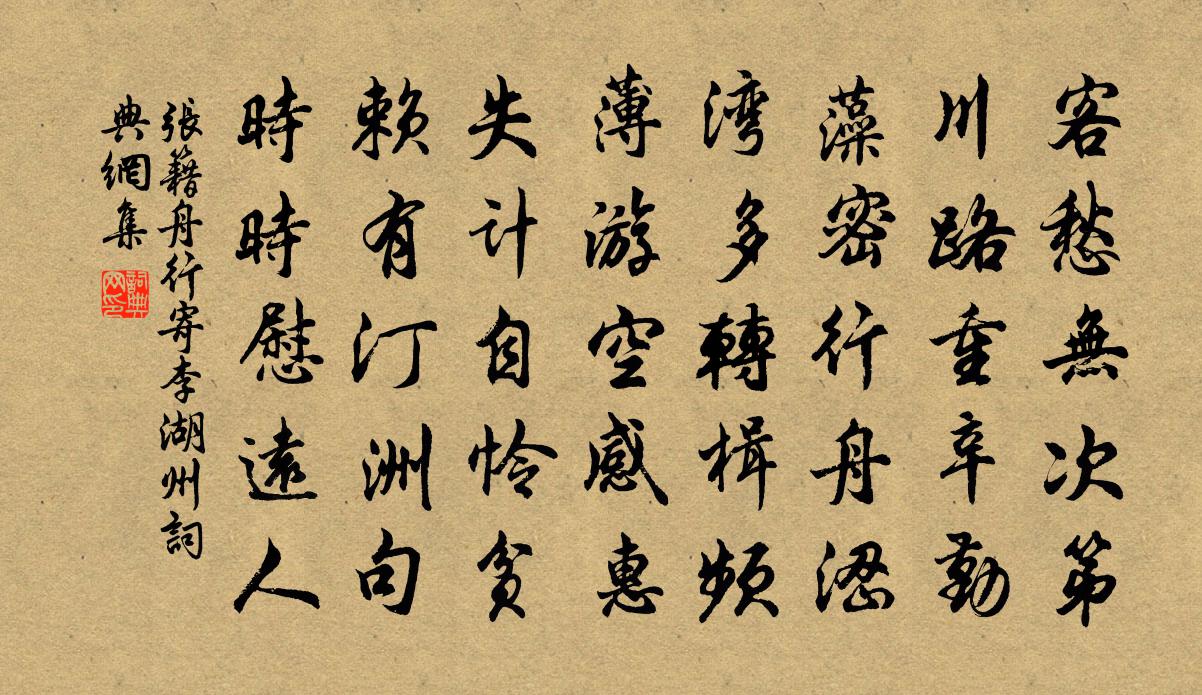 客愁無次第
川路重辛勤
藻密行舟澀
湾多轉楫頻
薄游空感惠
失计自怜貧
賴有汀洲句
時時慰遠人
張籍舟行寄李湖州詞
典網集
詞典
网印